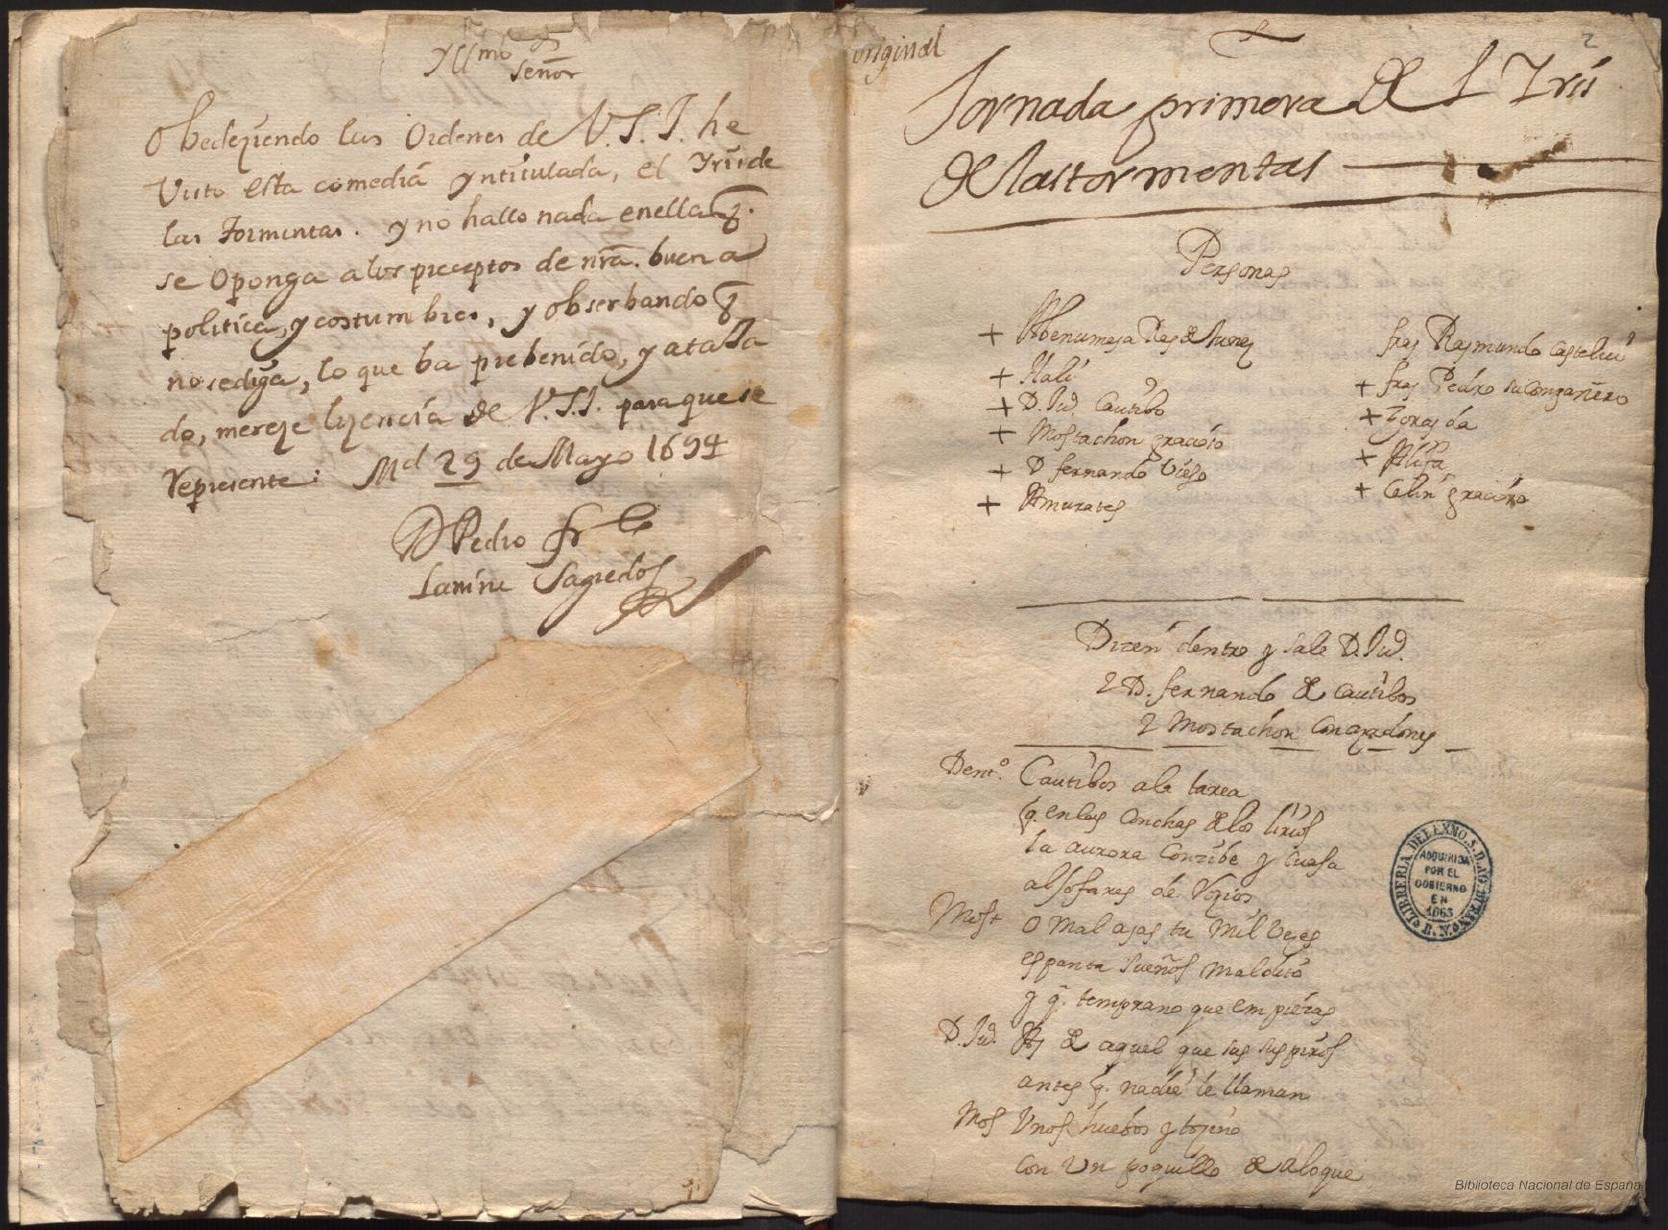 Yllmo
Señor
Obedeziendo las Ordenes de V.S.I. he
Visto esta comedia yntitulada, el Yris de
las Tormentas. y no hallo nada en ella q̃.
se Oponga a los preceptos de nrã. buena
politica, y costumbres, y obserbando q̃
no se diga, lo que ba prebenido, y ataJa
do, mereze lizencia de V.S.I. para que se
represente: Md 29 de Mayo 1694
D Pedro frco
Lanine Sagredo
original
2
Jornada primera del Yris
de las tormentas
Personas
+ Abenumeya Rey de tunez
+ Hali
+ D. Jud. Cautibo
+ Mostachon gracioso
+ D fernando Viejo
+ Amurates
fray Raymundo
+ fray Pedro su Conpañero
+ Zorayda
+ Alifa
+ Celin gracioso
Dizen dentro y sale D. Jud.
2 D. fernando de Cautibos
2 Mostachon Con azadones
Dento. Cautibos a la tarea
q. en las Conchas de los lirios
la aurora Conzibe y Cuaja
alJofares de
Most O mal ayas tu mil Vezes
espanta sueños maldito
y q. temprano que empiezas
D. Jud. Ay de aquel que sus suspiros
antes q. nadie le llaman
Mos Unos huebos y tozino
Con Un poquillo de aloque
LIBRERIA DEL EXMO. S. D. AG. DURAN. B. N.
ADQUIRIDA
POR EL
GOBIERNO
EN
1863
Biblioteca Nacional de España